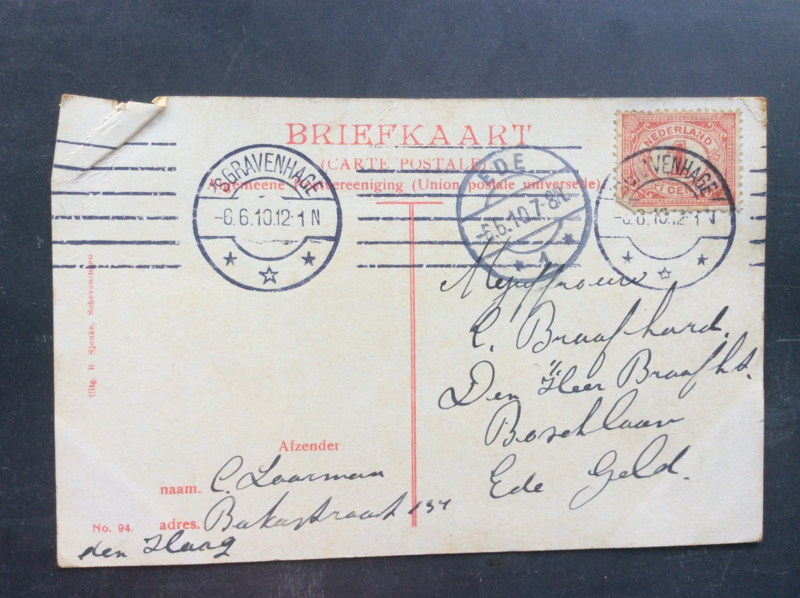 BRIEFKAART
(CARTE POSTALE)
Algemeene Postvereeniging (Union postale universelle)
'S GRAVENHAGE
-6.6.10.12-1 N
EDE
-6.6.10.7-8V.
1
NEDERLAND
1
'S GRAVENHAGE
-6.6.10.12-1 N
Uitg. B. Sjouke, Scheveningen
Mejuffrouw
C. Braafhard.
Den Heer Braafh.
Boschlaan
Ede Geld.
Afzender
naam. C. Laarman
No. 94.
adres.
den Haag